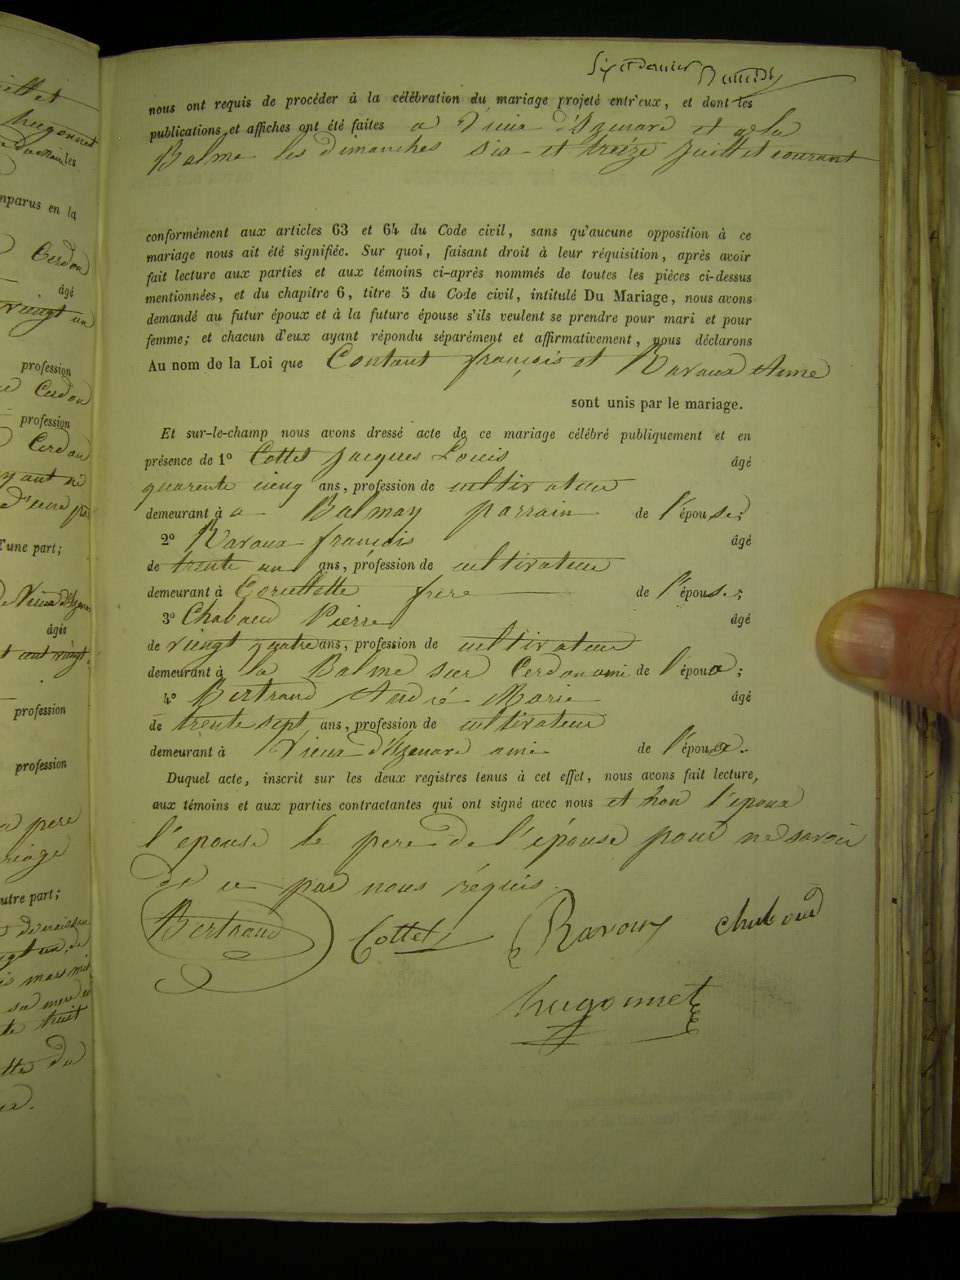 Six et dernier
nous ont requis de procéder à la célébration du mariage projeté entr'eux, et dont les
publications et affiches ont été faites a Vieu d'Izenave et a la
Balme les dimanches six et treize juillet courant
conformément aux articles 63 et 64 du Code civil, sans qu'aucune opposition à ce
mariage nous ait été signifiée. Sur quoi, faisant droit à leur réquisition, après avoir
fait lecture aux parties et aux témoins ci-après nommés de toutes les pièces ci-dessus
mentionnées, et du chapitre 6, titre 5 du Code civil, intitulé Du Mariage, nous avons
demandé au futur époux et à la future épouse s'ils veulent se prendre pour mari et pour
femme; et chacun d'eux ayant répondu séparément et affirmativement, nous déclarons
Au nom de la Loi que Contant françois et Ravoux Anne
sont unis par le mariage.
Et sur-le-champ nous avons dressé acte de ce mariage célébré publiquement et en
présence de 1º Cottet Jacques Louis âgé
quarente cinq ans, profession de cultivateur
demeurant à a Balmay parrain de l'épouse;
2º Ravoux françois âgé
de trente un ans, profession de cultivateur
demeurant à Corcellette frère de l'épouse;
3º Chaboud Pierre âgé
de vingt quatre ans, profession de cultivateur
demeurant à la Balme sur Cerdon ami de l'époux;
4º Bertrand André Marie âgé
de trente sept ans, profession de cultivateur
demeurant à Vieux d'Izenave ami de l'époux.
Duquel acte, inscrit sur les deux registres tenus à cet effet, nous avons fait lecture,
aux témoins et aux parties contractantes qui ont signé avec nous et non l'époux
l'épouse le pere de l'épouse pour ne savoir
de ce par nous réquis.
Bertrand Cottet Ravoux Chaboud
hugonnet